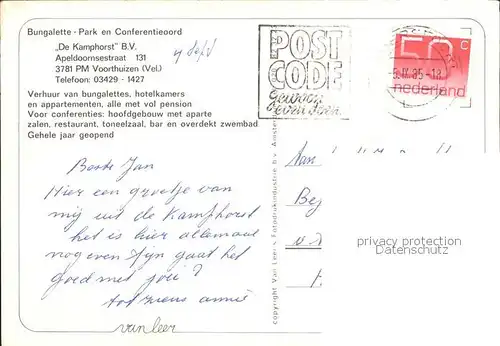 Bungalette - Park en Conferentieoord
„De Kamphorst” B.V.
Apeldoornsestraat 131
3781 PM Voorthuizen (Vel.)
Telefoon: 03429 - 1427
Verhuur van bungalettes, hotelkamers
en appartementen, alle met vol pension
Voor conferenties: hoofdgebouw met aparte
zalen, restaurant, toneelzaal, bar en overdekt zwembad
Gehele jaar geopend
4 Sept
POST
CODE
gewoon
even doen
50 c
nederland
Beste Jan
Hier een groetje van
mij uit de Kamphorst
het is hier allemaal
nog even fijn gaat het
goed met jou?
tot ziens annie
van leer
copyright Van Leer's Fotodrukindustrie b.v. Amster
Aan
privacy protection
Datenschutz